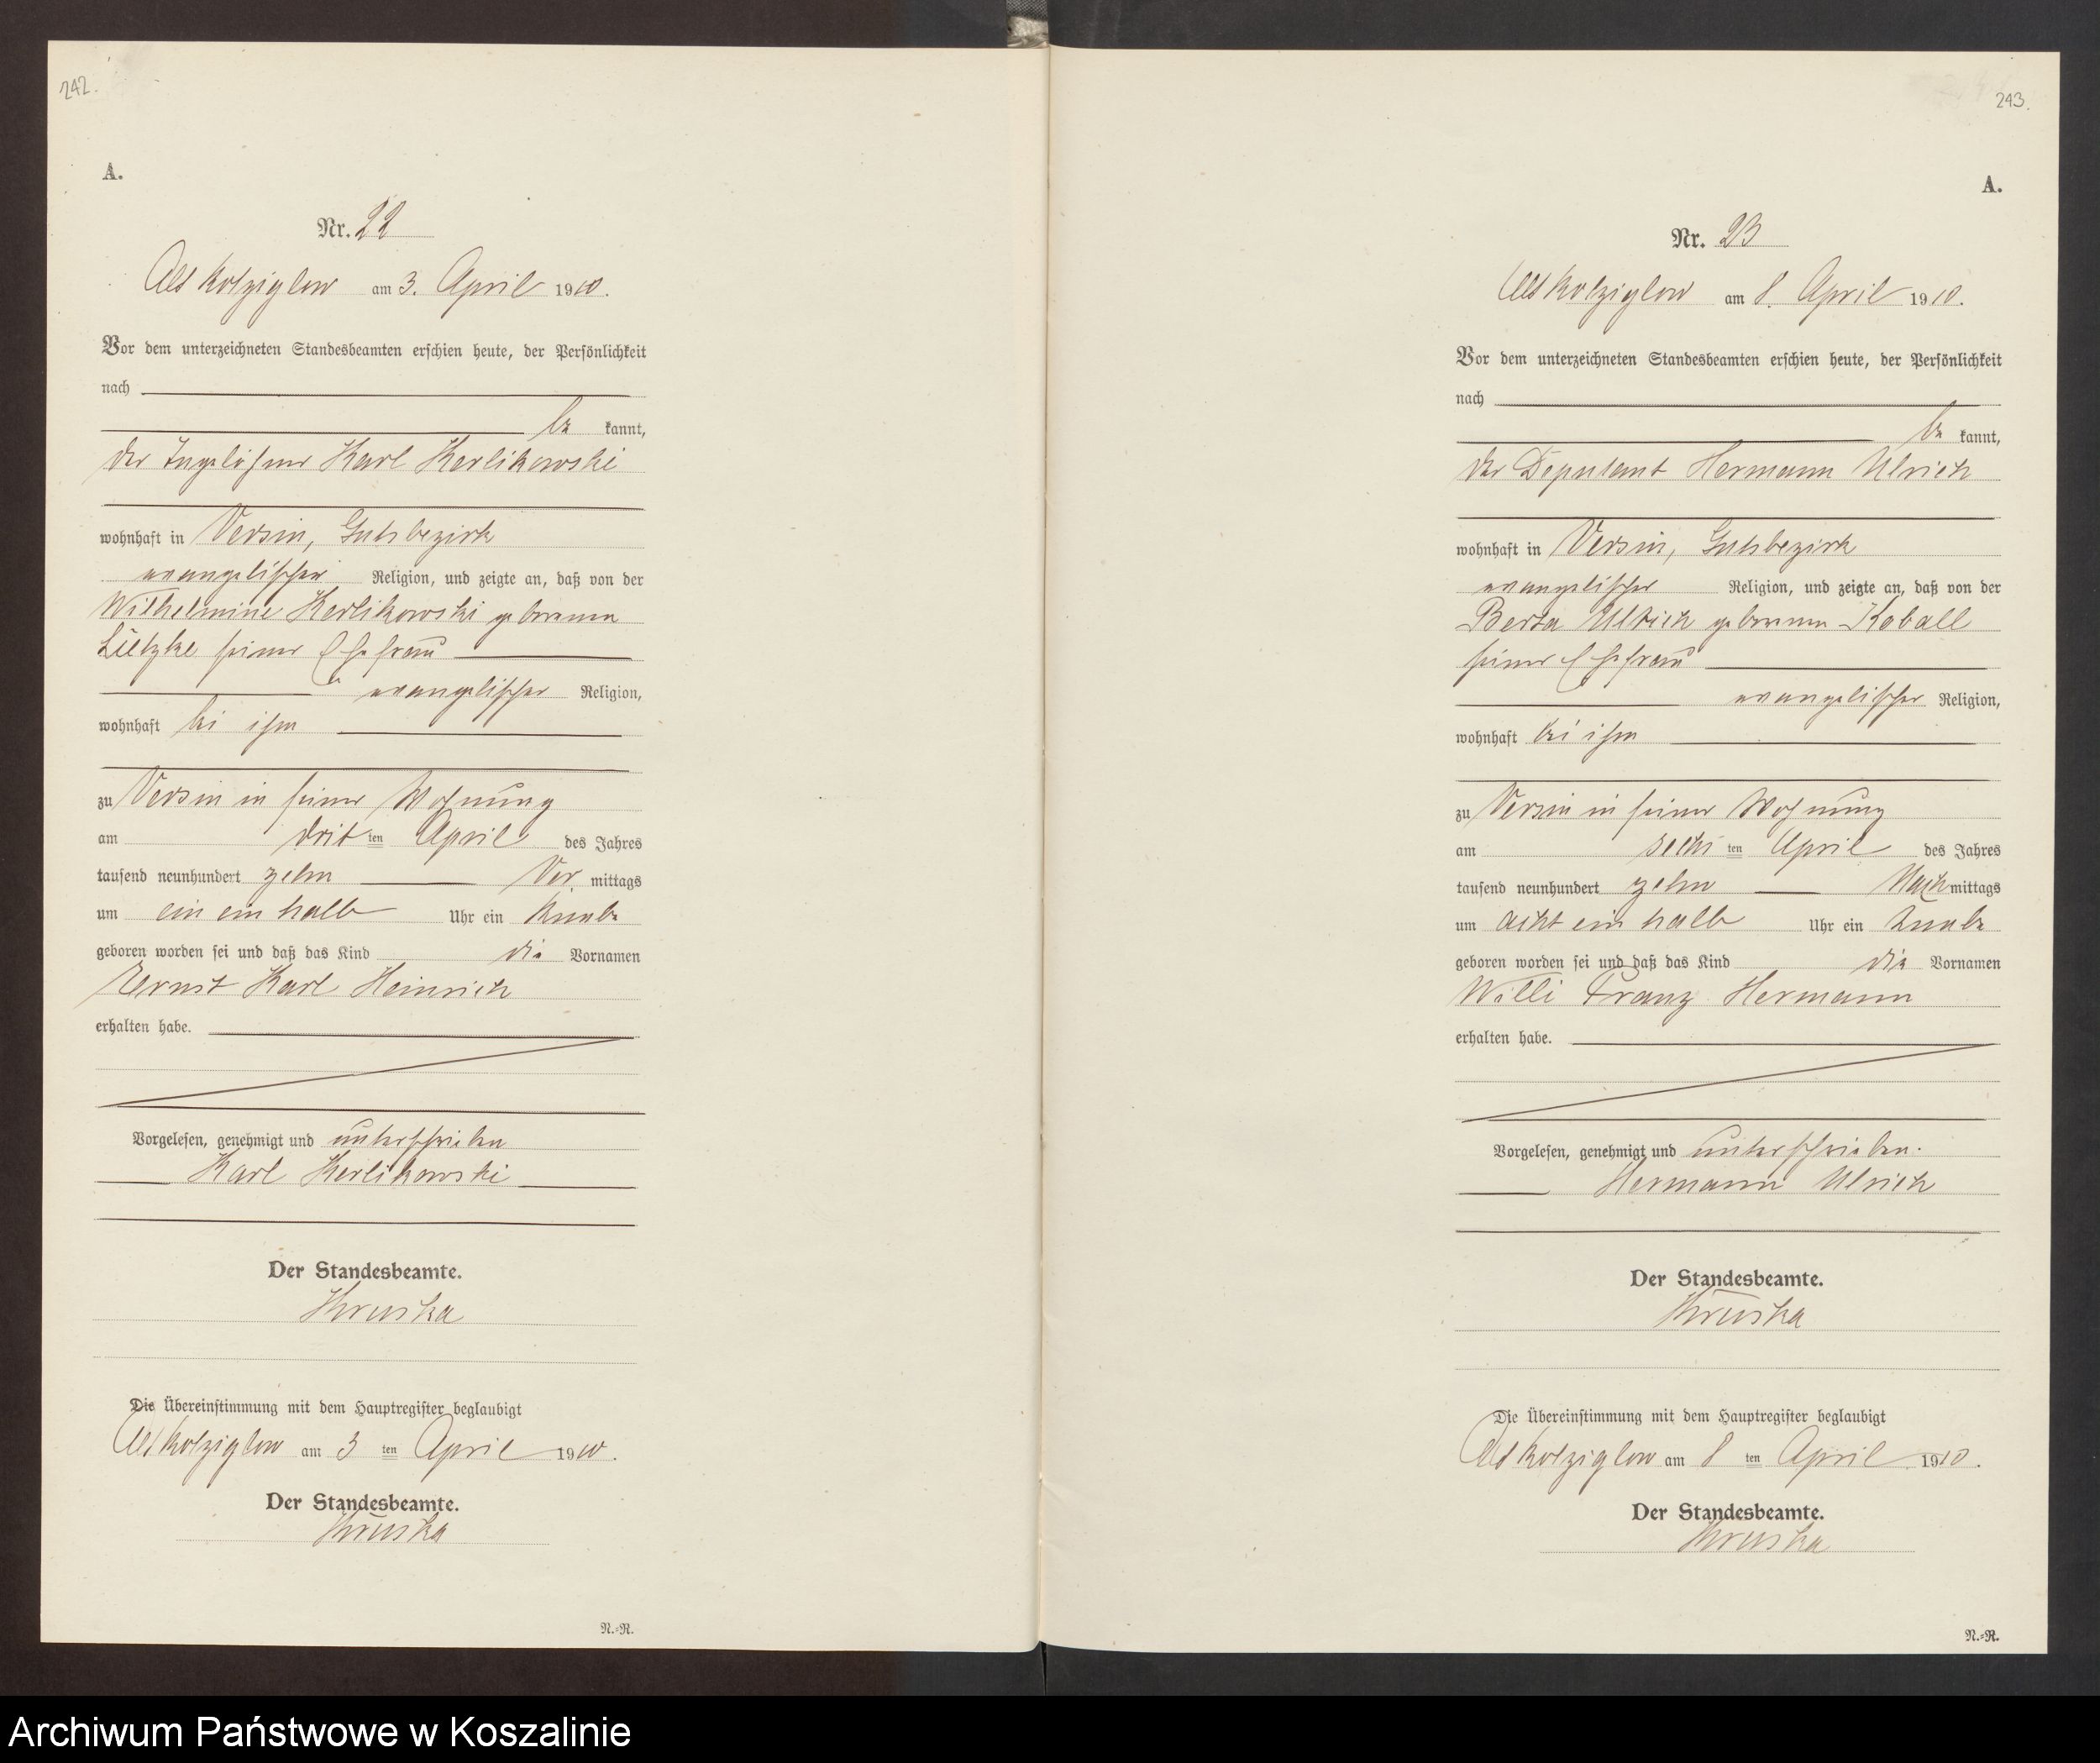 242.
A.
Nr. 22
Alt Kolziglow am 3. April 1910.
Vor dem unterzeichneten Standesbeamten erschien heute, der Persönlichkeit
nach
be kannt,
der Tagelöhner Karl Kerlikowski
wohnhaft in Versin, Gutsbezirk
evangelischer Religion, und zeigte an, daß von der
Wilhelmine Kerlikowski geborenen
Lietzke seiner Ehefrau
evangelischer Religion,
wohnhaft bei ihm
zu Versin in seiner Wohnung
am drit ten April des Jahres
tausend neunhundert zehn Vor mittags
um ein ein halb Uhr ein Knabe
geboren worden sei und daß das Kind die Vornamen
Ernst Karl Heinrich
erhalten habe.
Vorgelesen, genehmigt und unterschrieben
Karl Kerlikowski
Der Standesbeamte.
Kruska
Die Übereinstimmung mit dem Hauptregister beglaubigt
Alt Kolziglow am 3 ten April 1910.
Der Standesbeamte.
Kruska
N.=R.
243.
A.
Nr. 23
Alt Kolziglow am 8. April 1910.
Vor dem unterzeichneten Standesbeamten erschien heute, der Persönlichkeit
nach
be kannt,
der Deputant Hermann Ulrich
wohnhaft in Versin, Gutsbezirk
evangelischer Religion, und zeigte an, daß von der
Berta Ulrich geborenen Koball
seiner Ehefrau
evangelischer Religion,
wohnhaft bei ihm
zu Versin in seiner Wohnung
am sechs ten April des Jahres
tausend neunhundert zehn Nach mittags
um acht ein halb Uhr ein Knabe
geboren worden sei und daß das Kind die Vornamen
Willi Franz Hermann
erhalten habe.
Vorgelesen, genehmigt und unterschrieben.
Hermann Ulrich
Der Standesbeamte.
Kruska
Die Übereinstimmung mit dem Hauptregister beglaubigt
Alt Kolziglow am 8 ten April 1910.
Der Standesbeamte.
Kruska
N.=R.
Archiwum Państwowe w Koszalinie